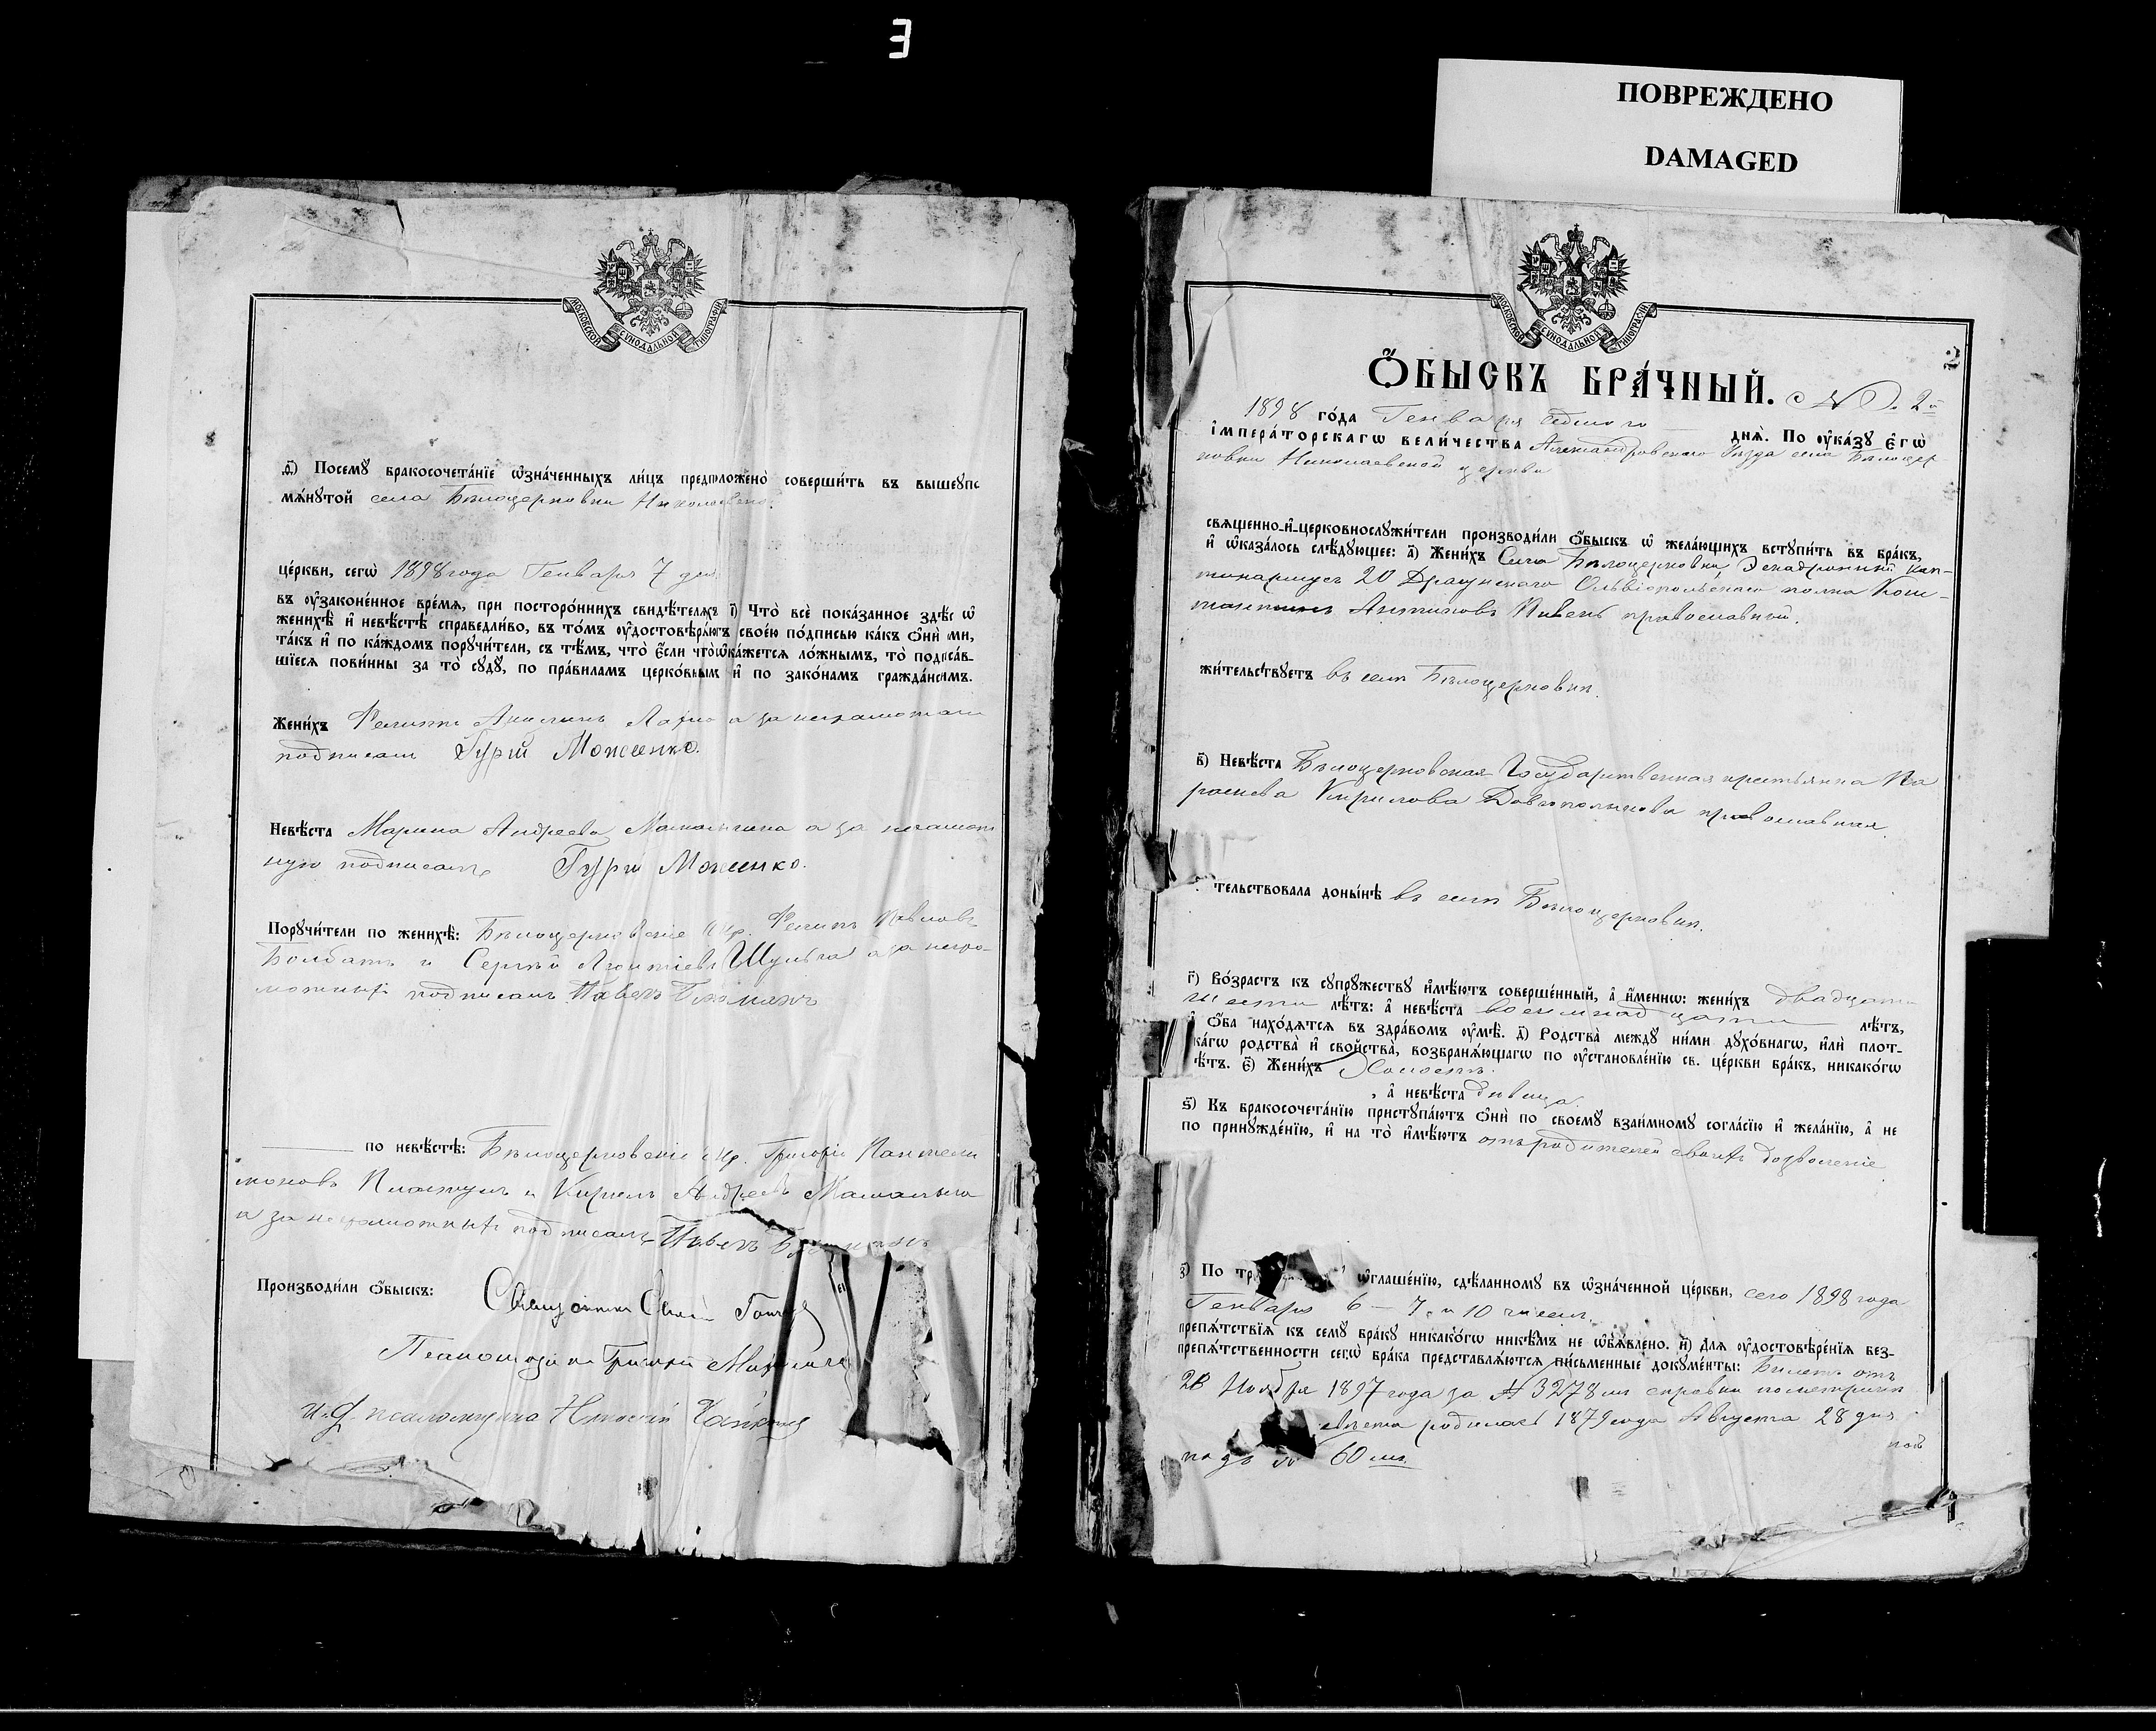 Е
ПОВРЕЖДЕНО
DAMAGED
МОСКОВСКОЙ СѴНОДАЛЬНОЙ ТИПОГРАФІИ
д҃і) Посемꙋ бракосочета́нїе ѡ҆зна́ченныхъ ли́цъ предположено̀ соверши́ть въ вышеупо
мѧ́нꙋтой села Бѣлоцерковки Николаевской
це́ркви, сегѡ̀ 1898 года Генваря 7 дня
въ ᲂу҆зако́не́нное вре́мѧ, при посторо́ннихъ свидѣ́телѧхъ і҃) Что̀ всѐ пока́занное здѣ́сь ѡ҆
женихѣ̀ и҆ невѣ́стѣ справедли́во, въ то́мъ ᲂу҆достовѣрѧ́ютъ свое́ю по́дписью ка́къ ѻ҆нѝ ми,
та́къ и҆ по ка́ждомъ порꙋчи́тели, съ тѣ́мъ, что̀ є҆́сли что̀ ѡ҆ка́жетсѧ ло́жнымъ, то̀ подписа́в-
шїесѧ пови́нны за то̀ сꙋдꙋ̀, по пра́виламъ церко́внымъ и҆ по зако́намъ гражда́нскимъ.
Жени́хъ Филиппъ а за неграмотнаго
подписалъ Гурій Моисеенко.
Невѣ́ста Марина Андреева а за неграмот
ную подписалъ Гурій Моисеенко.
Порꙋчи́тели по женихѣ̀: Бѣлоцерковскіе кр. Филиппъ Павловъ
и Сергѣй Леонтіевъ Шульга а за негра-
мотныхъ подписалъ Павелъ
по невѣ́стѣ: Бѣлоцерковскіе кр. Григорій Пантели
моновъ и Кириллъ Андреевъ
а за неграмотныхъ подписалъ Павелъ
Производи́ли ѻ҆́быскъ: Священникъ
Псаломщикъ Григорій
И. д. псаломщика Николай
2
Ѻ҆́БЫСКЪ БРА́ЧНЫЙ. № 2й
1898 го́да Генваря седмого днѧ̀. По ᲂу҆ка́зꙋ є҆гѡ̀
і҆мпера́торскагѡ вели́чества Александровскаго Уѣзда села Бѣлоцер-
ковки Николаевской церкви
свѧщенно-и҆-церковнослꙋжи́тели производи́ли ѻ҆́быскъ ѡ҆ жела́ющихъ встꙋпи́ть въ бра́къ,
и҆ ѡ҆каза́лось слѣ́дꙋющее: а҃) Жени́хъ Села Бѣлоцерковки Эскадронный кап-
тинармусъ 20 Драгунскаго Ольвіопольскаго полка Кон-
стантинъ Антиповъ Пивень православный.
жи́тельствꙋетъ въ селѣ Бѣлоцерковкѣ.
в҃) Невѣ́ста Бѣлоцерковская Государственная крестьянка Па
раскева Кирилова Довгополычева православная
тельствовала доны́нѣ въ селѣ Бѣлоцерковкѣ.
г҃) Во́зрастъ къ сꙋпрꙋжествꙋ и҆мѣ́ютъ соверше́нный, а҆ и҆́меннѡ: жени́хъ двадцати
шести лѣ́тъ: а҆ невѣ́ста восемнадцати лѣ́тъ,
и҆ ѻ҆́ба нахо́дѧтсѧ въ здра́вомъ ᲂу҆мѣ̀. д҃) Родства̀ междꙋ̀ ни́ми дꙋхо́внагѡ, и҆лѝ плот-
ка́гѡ родства̀ и҆ свойства̀, возбранѧ́ющагѡ по ᲂу҆становле́нїю св. це́ркви бра́къ, никако́гѡ
ѣ́тъ. є҃) Жени́хъ Холостъ.
, а҆ невѣ́ста дѣвица.
ѕ҃) Къ бракосочета́нїю пристꙋпа́ютъ ѻ҆нѝ по своемꙋ̀ взаи́мномꙋ согла́сїю и҆ жела́нїю, а҆ не
по принꙋжде́нїю, и҆ на то̀ и҆мѣ́ютъ отъ родителей своихъ дозволеніе
з҃) По тр ѡ҆глаше́нїю, сдѣ́ланномꙋ въ ѡ҆зна́ченной це́ркви, сего 1898 года
Генваря 6 – 7 и 10 чиселъ.
препѧ́тствїѧ къ семꙋ̀ бра́кꙋ никако́гѡ никѣ́мъ не ѡ҆б̾ѧ́влено. и҃) Длѧ ᲂу҆достовѣре́нїѧ без-
препѧ́тственности сегѡ̀ бра́ка представлѧ́ютсѧ пи́сьменные докꙋме́нты: Билетъ отъ
28 Ноября 1897 года за № 3278 справки по метрикѣ
родилась 1879 года Августа 28 дня
подъ
60